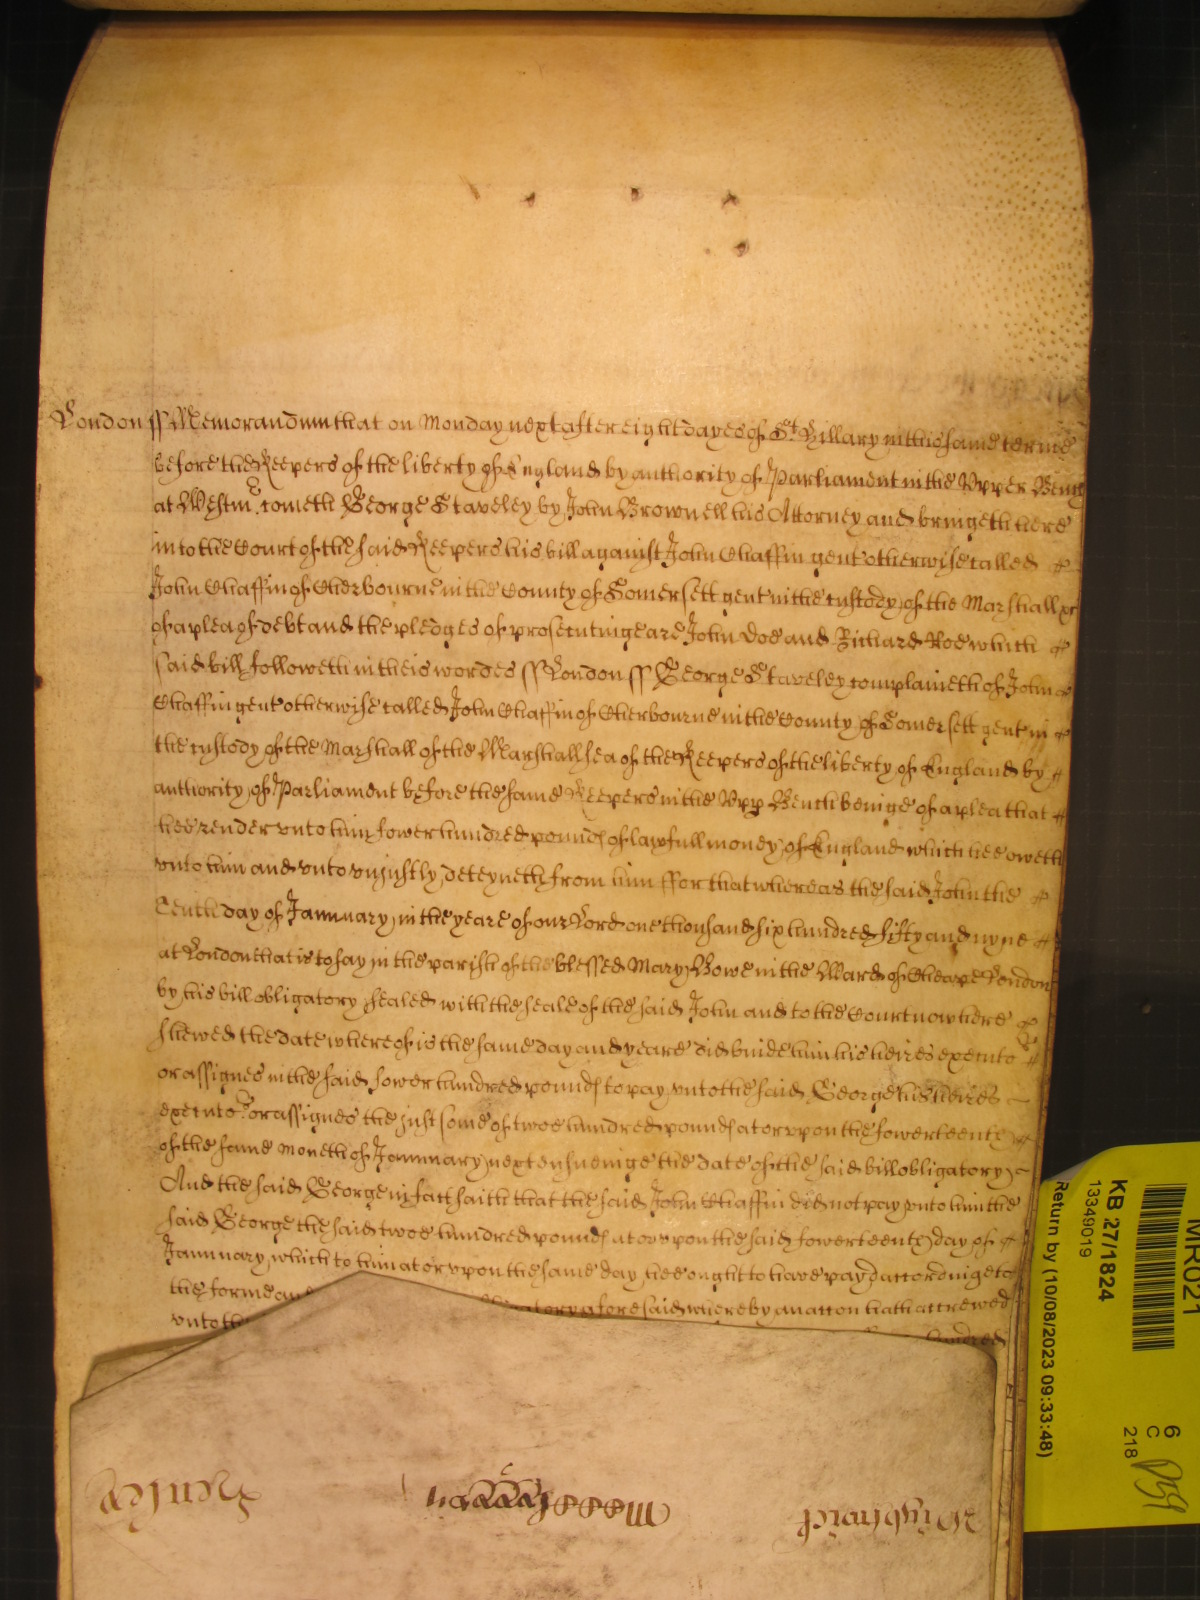 London ss Memorandum that on Monday next after eight dayes of St Hillary in this same terme
before the Keepers of the liberty of England by authority of Parliament in the Upper Bench
at Westm. cometh George Staveley by John Brownell his Attorney and bringeth here
into the Court of the said Keepers his bill against John Chaffin gent otherwise called
John Chaffin of Cherbourne in the County of Somersett gent in the custody of the Marshall &c
of a plea of debt and the pledges of prosecutinge are John Doe and Richard Roe which
said bill followeth in theis wordes ss London ss George Staveley complaineth of John
Chaffin gent otherwise called John Chaffin of Cherbourne in the County of Somersett gent in
the custody of the Marshall of the Marshallsea of the Keepers of the liberty of England by
authority of Parliament before the same Keepers in the Upp Bench beinge of a plea that
hee render unto him fower hundred pounds of lawfull money of England which hee oweth
unto him and unto unjustly deteyneth from him ffor that whereas the said John the
Tenth day of Jannuary in the yeare of our Lord one thousand six hundred fifty and nyne
at London that is to say in the parish of the blessed Mary Bowe in the Ward of Cheape London
by his bill obligatory sealed with the seale of the said John and to the Court now here
shewed the date whereof is the same day and yeare did binde him his heires executo
or assignes in the said fower hundred pounds to pay unto the said George his heires
executo or assignes the just some of twoe hundred pounds at or upon the fowerteenth
of the same moneth of Jannuary next ensueinge the date of the said bill obligatory
And the said George in fact saith that the said John Chaffin did not pay unto him the
said George the said twoe hundred pounds at or upon the said fowerteenth day of
Jannuary which to him at or upon the same day hee ought to have payd accordinge to
the forme and aforesaid whereby an accon hath accrewed
unto the hundred
Henley
Wightwick
MR021
KB 27/1824
13349019
Return by (10/08/2023 09:33:48)
6
C
218